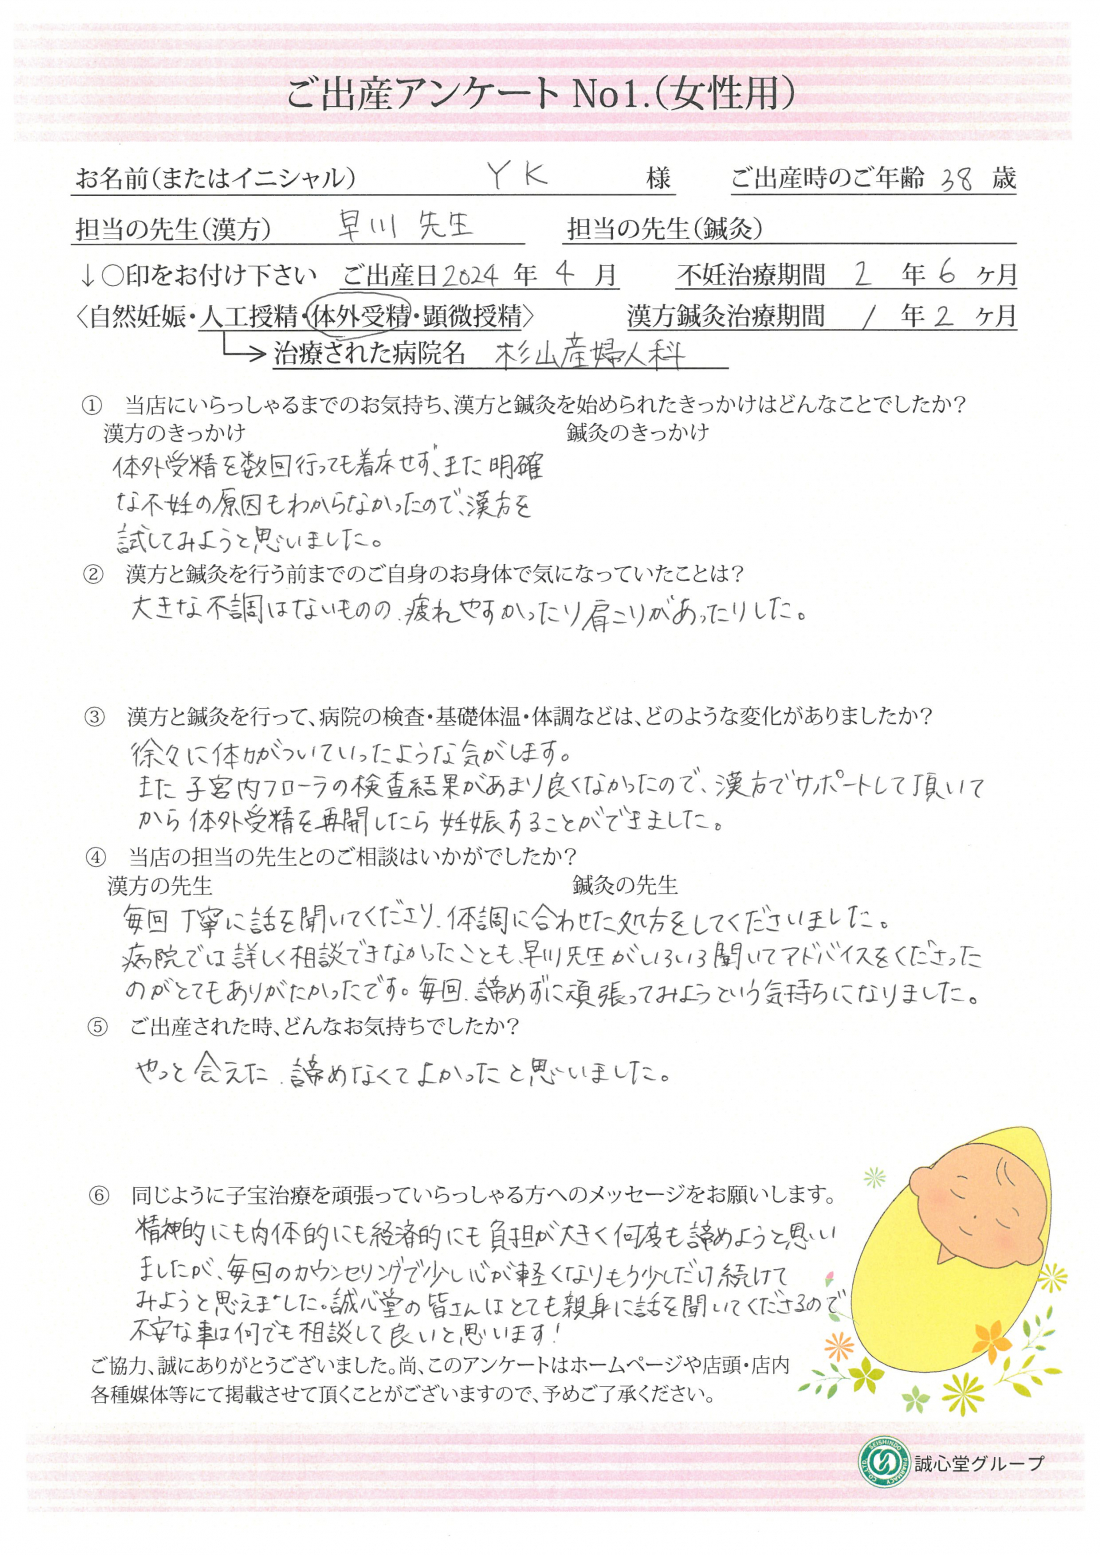 ご出産アンケート No1.(女性用)
お名前(またはイニシャル) YK 様 ご出産時のご年齢 38 歳
担当の先生(漢方) 早川 先生 担当の先生(鍼灸)
↓○印をお付け下さい ご出産日 2024 年 4 月 不妊治療期間 2 年 6 ヶ月
〈自然妊娠・人工授精・体外受精・顕微授精〉 漢方鍼灸治療期間 1 年 2 ヶ月
治療された病院名 杉山産婦人科
① 当店にいらっしゃるまでのお気持ち、漢方と鍼灸を始められたきっかけはどんなことでしたか?
漢方のきっかけ 鍼灸のきっかけ
体外受精を数回行っても着床せず、また明確
な不妊の原因もわからなかったので、漢方を
試してみようと思いました。
② 漢方と鍼灸を行う前までのご自身のお身体で気になっていたことは?
大きな不調はないものの、疲れやすかったり肩こりがあったりした。
③ 漢方と鍼灸を行って、病院の検査・基礎体温・体調などは、どのような変化がありましたか?
徐々に体力がついていったような気がします。
また子宮内フローラの検査結果があまり良くなかったので、漢方でサポートして頂いて
から体外受精を再開したら妊娠することができました。
④ 当店の担当の先生とのご相談はいかがでしたか?
漢方の先生 鍼灸の先生
毎回丁寧に話を聞いてくださり、体調に合わせた処方をしてくださいました。
病院では詳しく相談できなかったことも、早川先生がいろいろ聞いてアドバイスをくださった
のがとてもありがたかったです。毎回、諦めずに頑張ってみようという気持ちになりました。
⑤ ご出産された時、どんなお気持ちでしたか?
やっと会えた、諦めなくてよかったと思いました。
⑥ 同じように子宝治療を頑張っていらっしゃる方へのメッセージをお願いします。
精神的にも肉体的にも経済的にも負担が大きく何度も諦めようと思い
ましたが、毎回のカウンセリングで少し心が軽くなりもう少しだけ続けて
みようと思えました。誠心堂の皆さんはとても親身に話を聞いてくださるので
不安な事は何でも相談して良いと思います!
ご協力、誠にありがとうございました。尚、このアンケートはホームページや店頭・店内
各種媒体等にて掲載させて頂くことがございますので、予めご了承ください。
誠心堂グループ